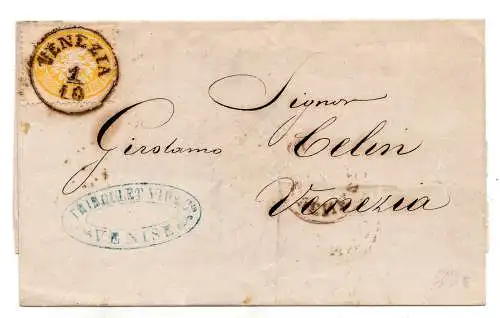 VENEZIA
1/10
Signor
Girolamo Celin
Venezia
VENISE